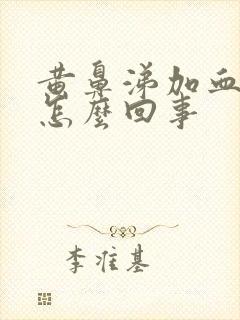 黄鼻涕加血
怎麼回事
李准基